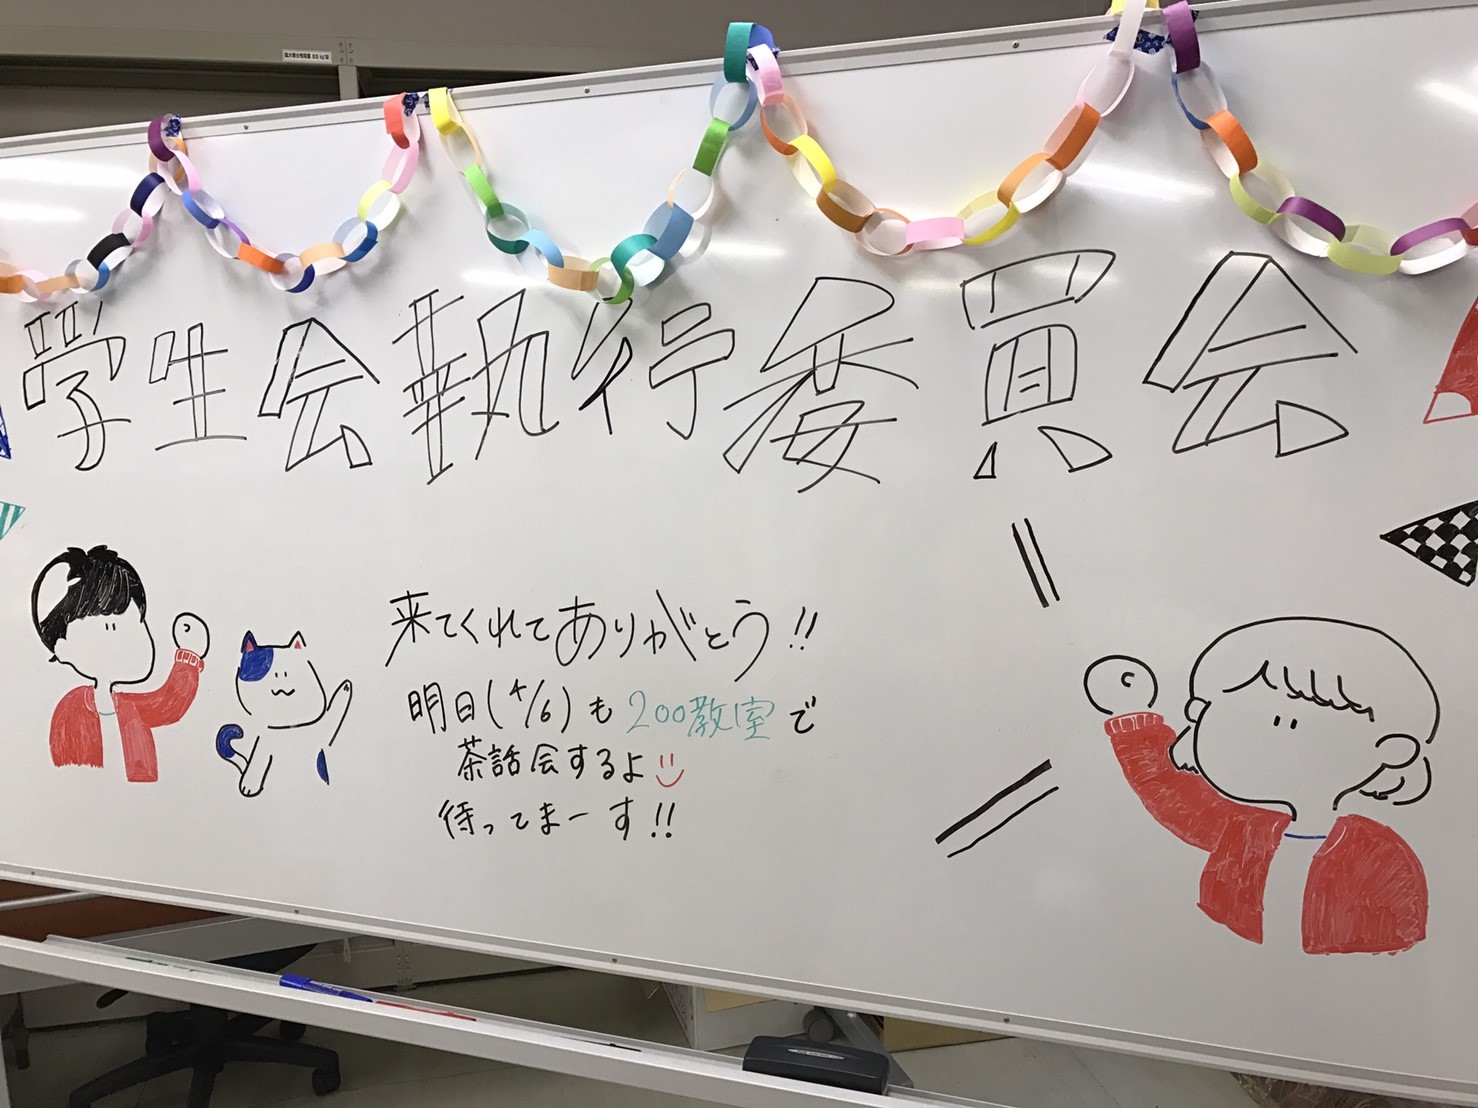 学生会執行委員会
来てくれてありがとう!!
明日(4/6)も200教室で
茶話会するよ
待ってまーす!!